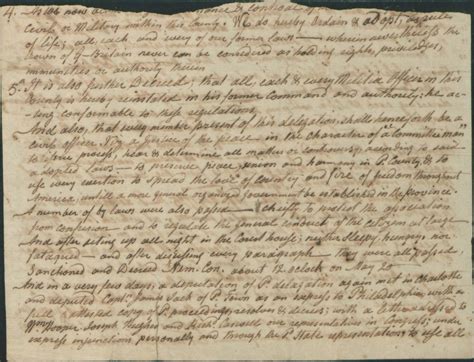 4. As we now
Civil or Military within this County. We do hereby Ordain & adopt, as rules
of life; all, each and every of our former laws — wherein nevertheless the
Crown of G. Britain never can be considered as holding rights, priviledges,
immunities or authority herein
5th It is also further Decreed; that all, each & every Militia Officer in this
County is hereby reinstated in his former Command and authority; he ac-
ting conformable to these regulations.
And also, that every member present of this delegation shall henceforth be a
civil officer viz. a Justice of the peace in the character of a "Committee man"
to issue process, hear & determine all matters of controversy, according to said
adopted laws — to preserve peace, union and harmony in Sd County; & to
use every exertion to spread the love of country and fire of freedom throughout
America, until a more general organized government be established in the Province.
A number of by laws were also passed — chiefly to protect the association
from confusion, and to regulate the general conduct of the citizens at large
And after siting up all night in the Court house; neither sleepy, hungry nor
fatagued — and after discussing every paragraph, they were all passed
Sanctioned and Decreed about 12 o'clock on May 20.
And in a very few days, a deputation of Sd delegation again met in Charlotte
and deputed Captn James Jack of Sd Town as an express to Philadelphia, with a
attested copy of Sd proceedings, resolves & decrees; with a
Wm Hooper, Joseph Hughes and our representatives in Congress; under
express injunctions, personally and through the State representatives to use all